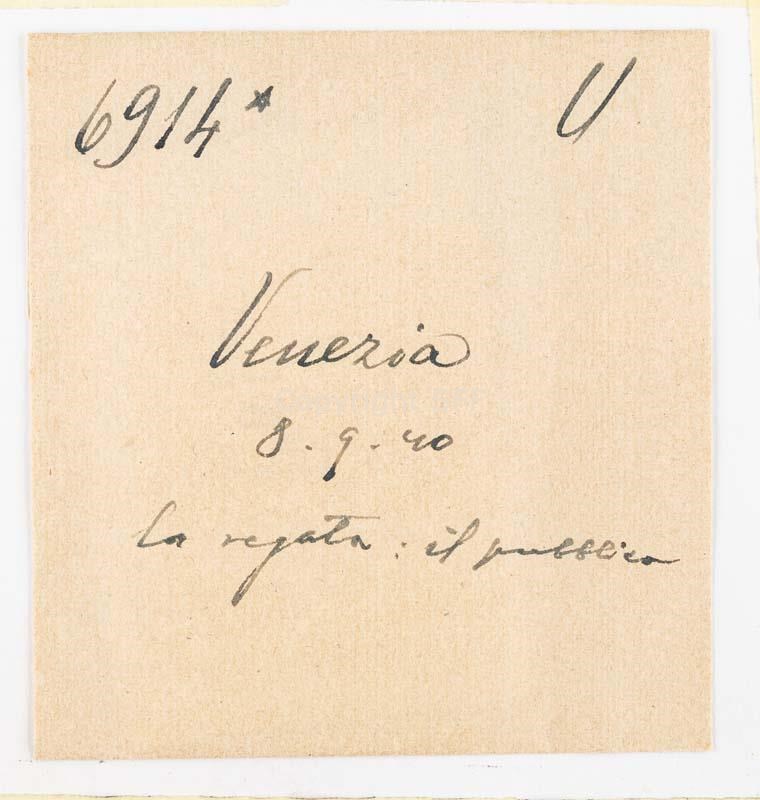 6914* U
Venezia
8.9.40
la regata: il pubblico